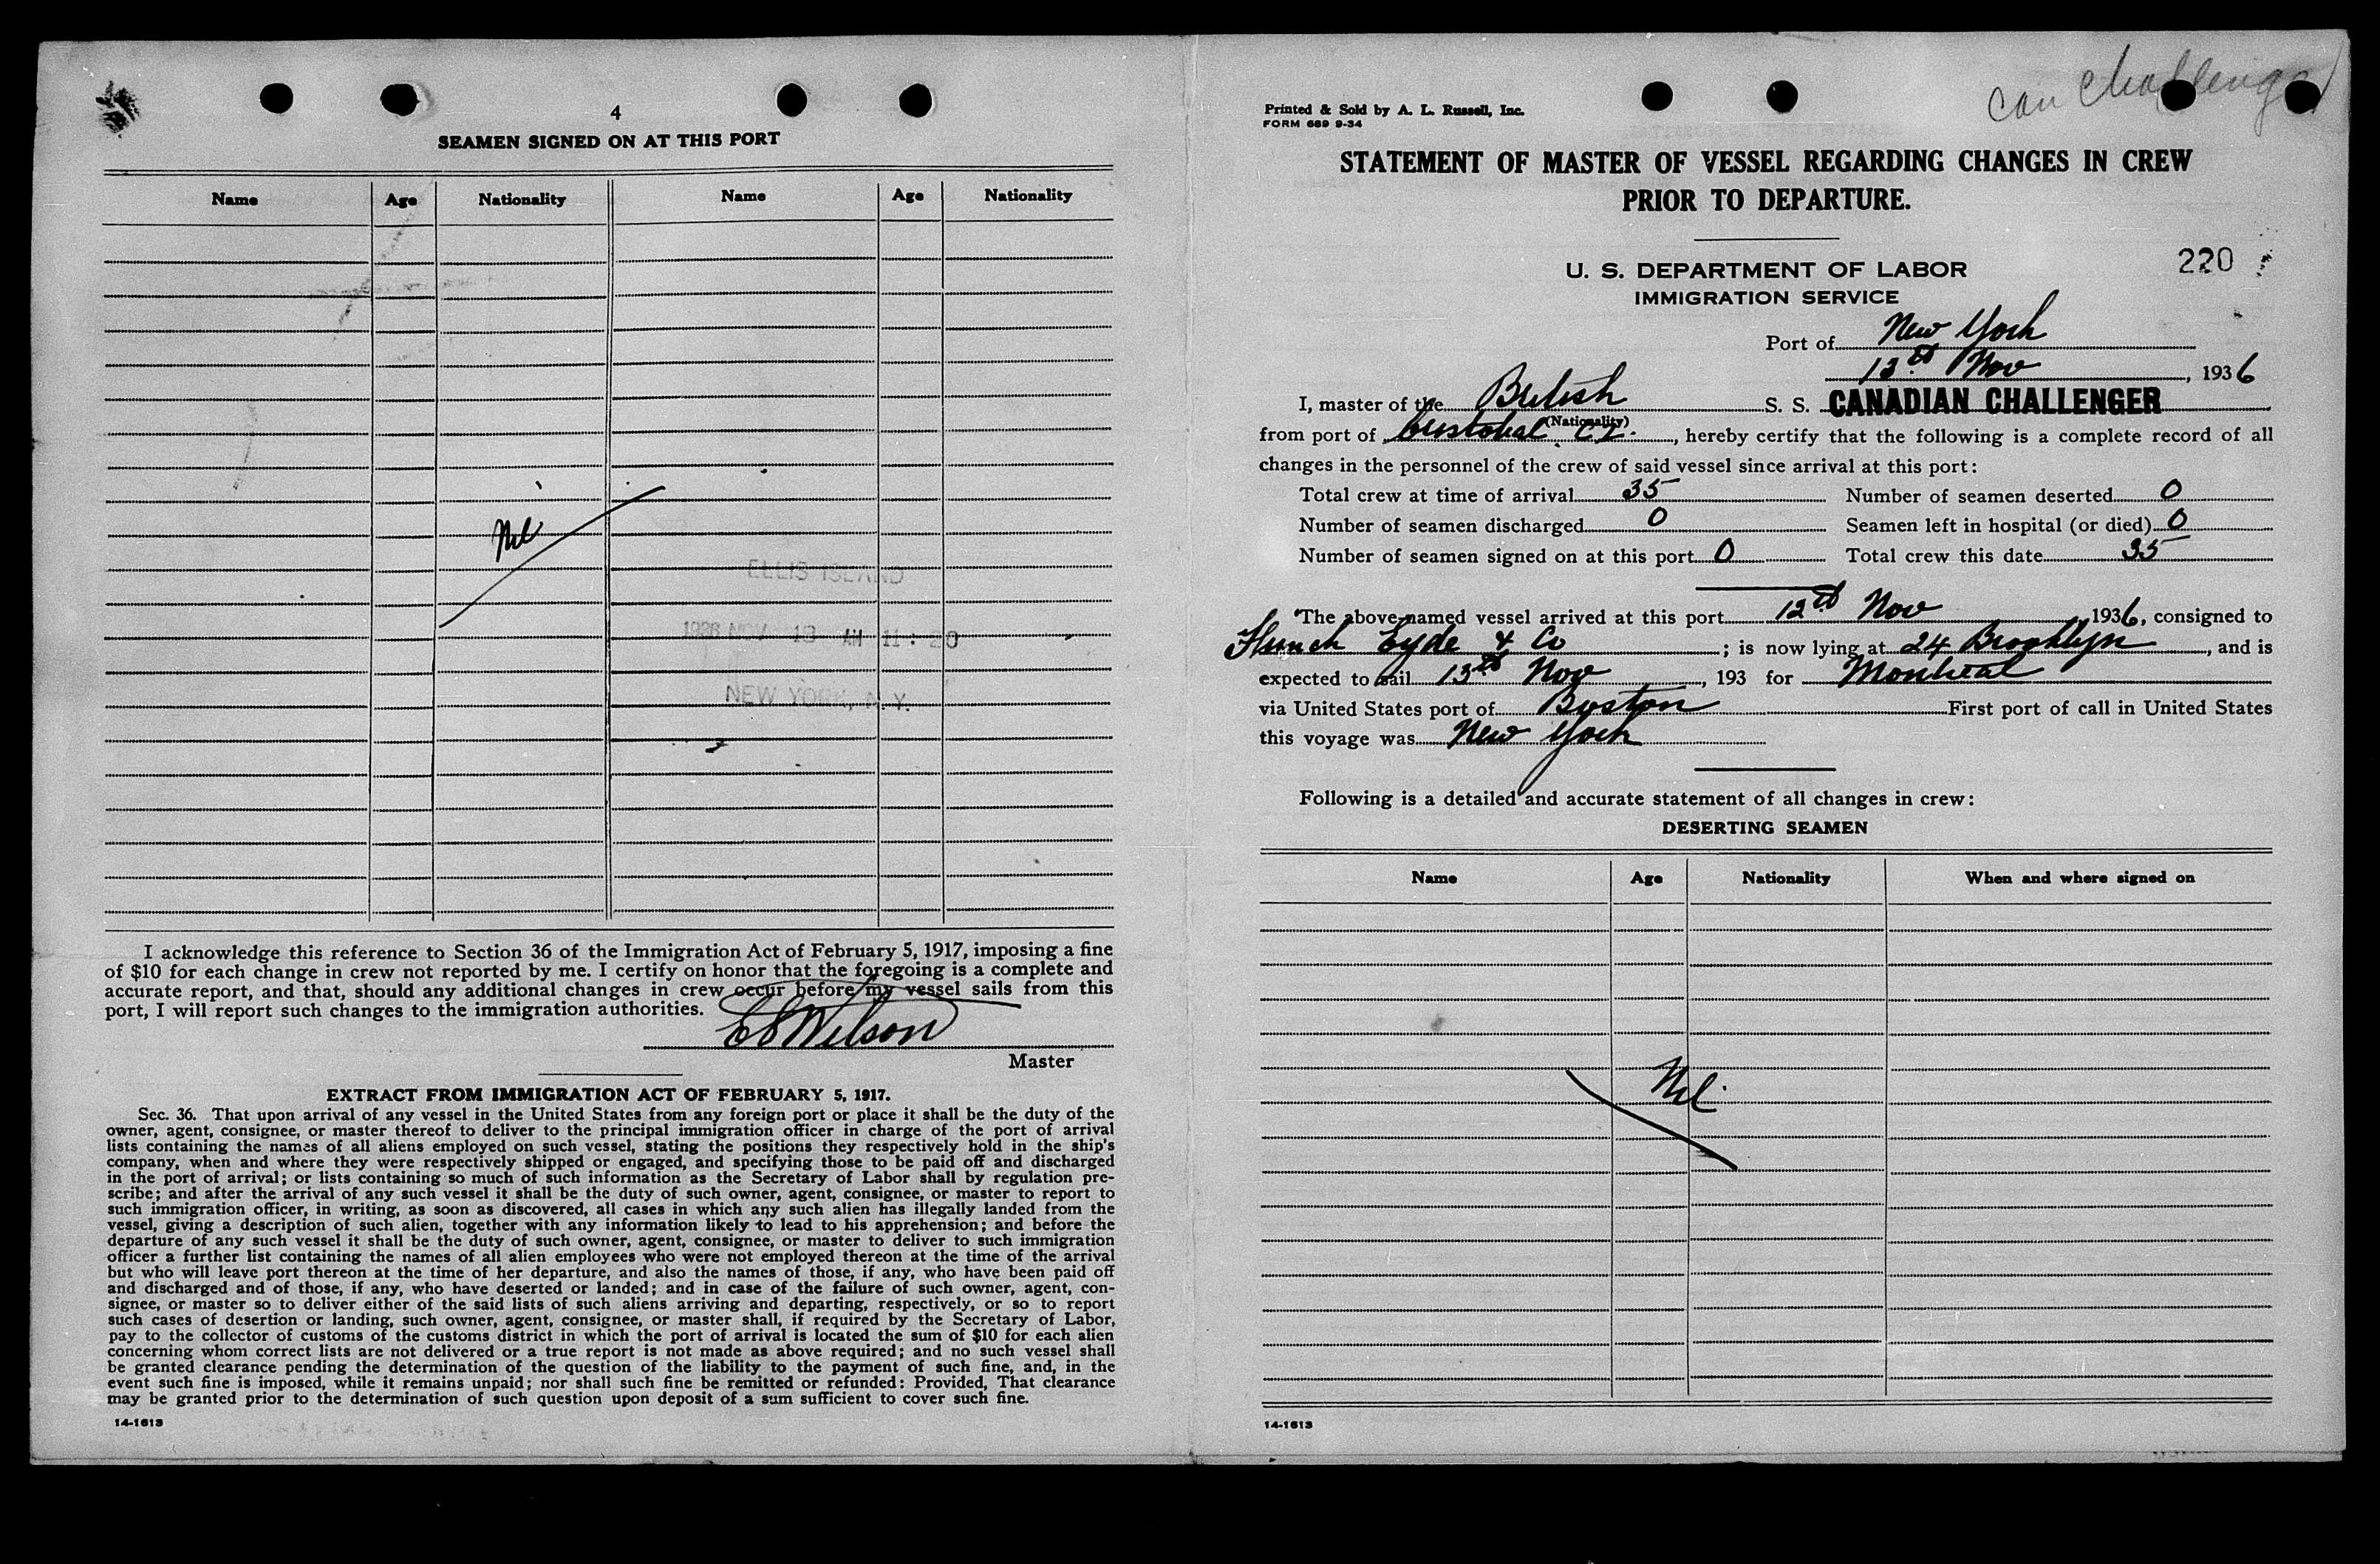 4
SEAMEN SIGNED ON AT THIS PORT
Name Age Nationality Name Age Nationality
Nil
ELLIS ISLAND
1936 NOV 13 AM 11:20
NEW YORK, N.Y.
I acknowledge this reference to Section 36 of the Immigration Act of February 5, 1917, imposing a fine
of $10 for each change in crew not reported by me. I certify on honor that the foregoing is a complete and
accurate report, and that, should any additional changes in crew occur before my vessel sails from this
port, I will report such changes to the immigration authorities.
Wilson
Master
EXTRACT FROM IMMIGRATION ACT OF FEBRUARY 5, 1917.
Sec. 36. That upon arrival of any vessel in the United States from any foreign port or place it shall be the duty of the
owner, agent, consignee, or master thereof to deliver to the principal immigration officer in charge of the port of arrival
lists containing the names of all aliens employed on such vessel, stating the positions they respectively hold in the ship's
company, when and where they were respectively shipped or engaged, and specifying those to be paid off and discharged
in the port of arrival; or lists containing so much of such information as the Secretary of Labor shall by regulation pre-
scribe; and after the arrival of any such vessel it shall be the duty of such owner, agent, consignee, or master to report to
such immigration officer, in writing, as soon as discovered, all cases in which any such alien has illegally landed from the
vessel, giving a description of such alien, together with any information likely to lead to his apprehension; and before the
departure of any such vessel it shall be the duty of such owner, agent, consignee, or master to deliver to such immigration
officer a further list containing the names of all alien employees who were not employed thereon at the time of the arrival
but who will leave port thereon at the time of her departure, and also the names of those, if any, who have been paid off
and discharged and of those, if any, who have deserted or landed; and in case of the failure of such owner, agent, con-
signee, or master so to deliver either of the said lists of such aliens arriving and departing, respectively, or so to report
such cases of desertion or landing, such owner, agent, consignee, or master shall, if required by the Secretary of Labor,
pay to the collector of customs of the customs district in which the port of arrival is located the sum of $10 for each alien
concerning whom correct lists are not delivered or a true report is not made as above required; and no such vessel shall
be granted clearance pending the determination of the question of the liability to the payment of such fine, and, in the
event such fine is imposed, while it remains unpaid; nor shall such fine be remitted or refunded: Provided, That clearance
may be granted prior to the determination of such question upon deposit of a sum sufficient to cover such fine.
14-1613
can Challenger
Printed & Sold by A. L. Russell, Inc.
FORM 689 9-34
STATEMENT OF MASTER OF VESSEL REGARDING CHANGES IN CREW
PRIOR TO DEPARTURE.
U. S. DEPARTMENT OF LABOR
220
IMMIGRATION SERVICE
Port of New York
13th Nov, 1936
I, master of the British S. S. CANADIAN CHALLENGER
(Nationality)
from port of Cristobal C.Z., hereby certify that the following is a complete record of all
changes in the personnel of the crew of said vessel since arrival at this port:
Total crew at time of arrival 35 Number of seamen deserted 0
Number of seamen discharged 0 Seamen left in hospital (or died) 0
Number of seamen signed on at this port 0 Total crew this date 35
The above-named vessel arrived at this port 12th Nov 1936, consigned to
Eyde & Co; is now lying at 24 Brooklyn, and is
expected to sail 13th Nov, 193 for Montreal
via United States port of Boston First port of call in United States
this voyage was New York
Following is a detailed and accurate statement of all changes in crew:
DESERTING SEAMEN
Name Age Nationality When and where signed on
Nil
14-1613